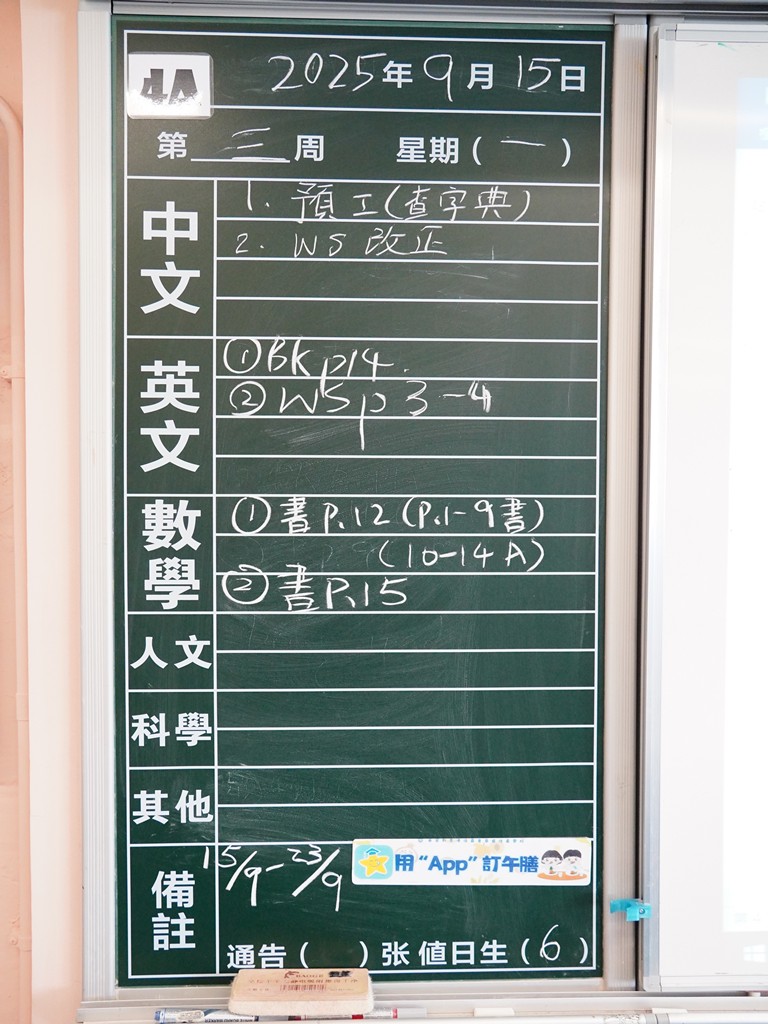 4A
2025年9月15日
第三周 星期(一)
中文
1. 預工(查字典)
2. WS 改正
英文
①BK p14.
②WS p 3-4
數學
①書P.12 (P.1-9書)
(10-14A)
②書P.15
人文
科學
其他
備註
15/9-23/9
用“App”訂午膳
通告( )张 值日生(6)